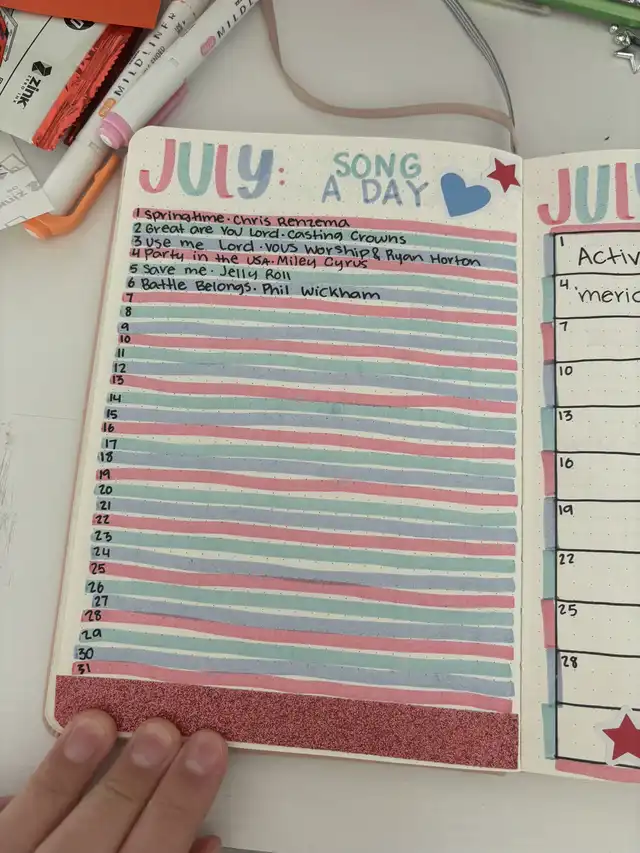 zink
MILDLINER
MILDLI
JULY:
SONG
A DAY
1 Springtime · Chris Renzema
2 Great are You Lord · Casting Crowns
3 Use me Lord · VOUS Worship & Ryan Horton
4 Party in the USA · Miley Cyrus
5 Save me · Jelly Roll
6 Battle Belongs · Phil Wickham
7
8
9
10
11
12
13
14
15
16
17
18
19
20
21
22
23
24
25
26
27
28
29
30
31
JUL
1
Activ
4
'meric
7
10
13
16
19
22
25
28